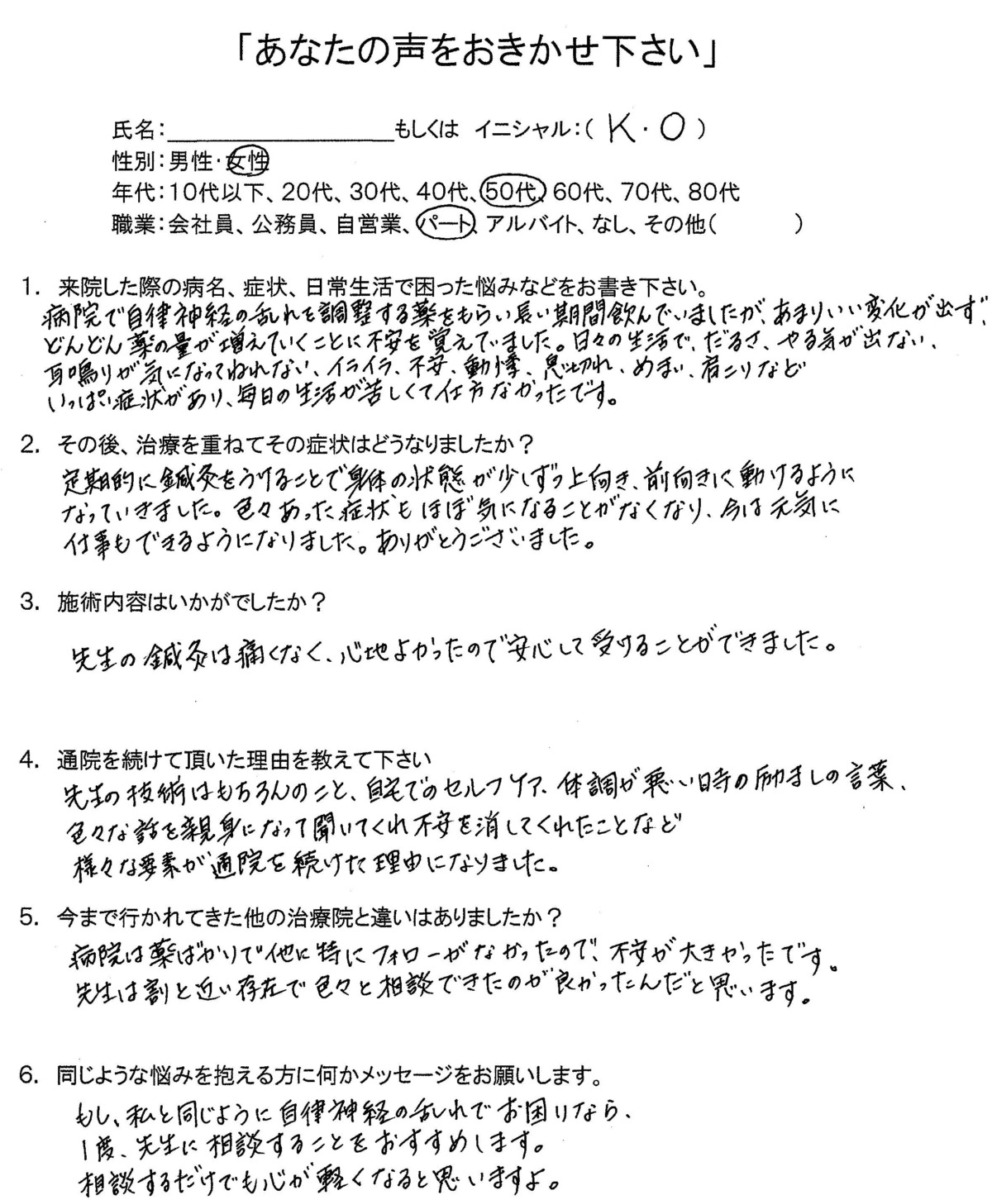 「あなたの声をおきかせ下さい」
氏名：＿＿＿＿＿＿＿＿もしくは イニシャル：（ K・O ）
性別：男性・女性
年代：10代以下、20代、30代、40代、50代、60代、70代、80代
職業：会社員、公務員、自営業、パート、アルバイト、なし、その他（　　　　）
1. 来院した際の病名、症状、日常生活で困った悩みなどをお書き下さい。
病院で自律神経の乱れを調整する薬をもらい長い期間飲んでいましたが、あまりいい変化が出ず、
どんどん薬の量が増えていくことに不安を覚えていました。日々の生活で、だるさ、やる気が出ない、
耳鳴りが気になってねれない、イライラ、不安、動悸、息切れ、めまい、肩こりなど
いっぱい症状があり、毎日の生活が苦しくて仕方なかったです。
2. その後、治療を重ねてその症状はどうなりましたか？
定期的に鍼灸をうけることで身体の状態が少しずつ上向き、前向きに動けるように
なっていきました。色々あった症状もほぼ気になることがなくなり、今は元気に
仕事もできるようになりました。ありがとうございました。
3. 施術内容はいかがでしたか？
先生の鍼灸は痛くなく、心地よかったので安心して受けることができました。
4. 通院を続けて頂いた理由を教えて下さい
先生の技術はもちろんのこと、自宅でのセルフケア、体調が悪い時の励ましの言葉、
色々な話を親身になって聞いてくれ不安を消してくれたことなど
様々な要素が通院を続けた理由になりました。
5. 今まで行かれてきた他の治療院と違いはありましたか？
病院は薬ばかりで他に特にフォローがなかったので、不安が大きかったです。
先生は割と近い存在で色々と相談できたのが良かったんだと思います。
6. 同じような悩みを抱える方に何かメッセージをお願いします。
もし、私と同じように自律神経の乱れでお困りなら、
1度、先生に相談することをおすすめします。
相談するだけでも心が軽くなると思いますよ。